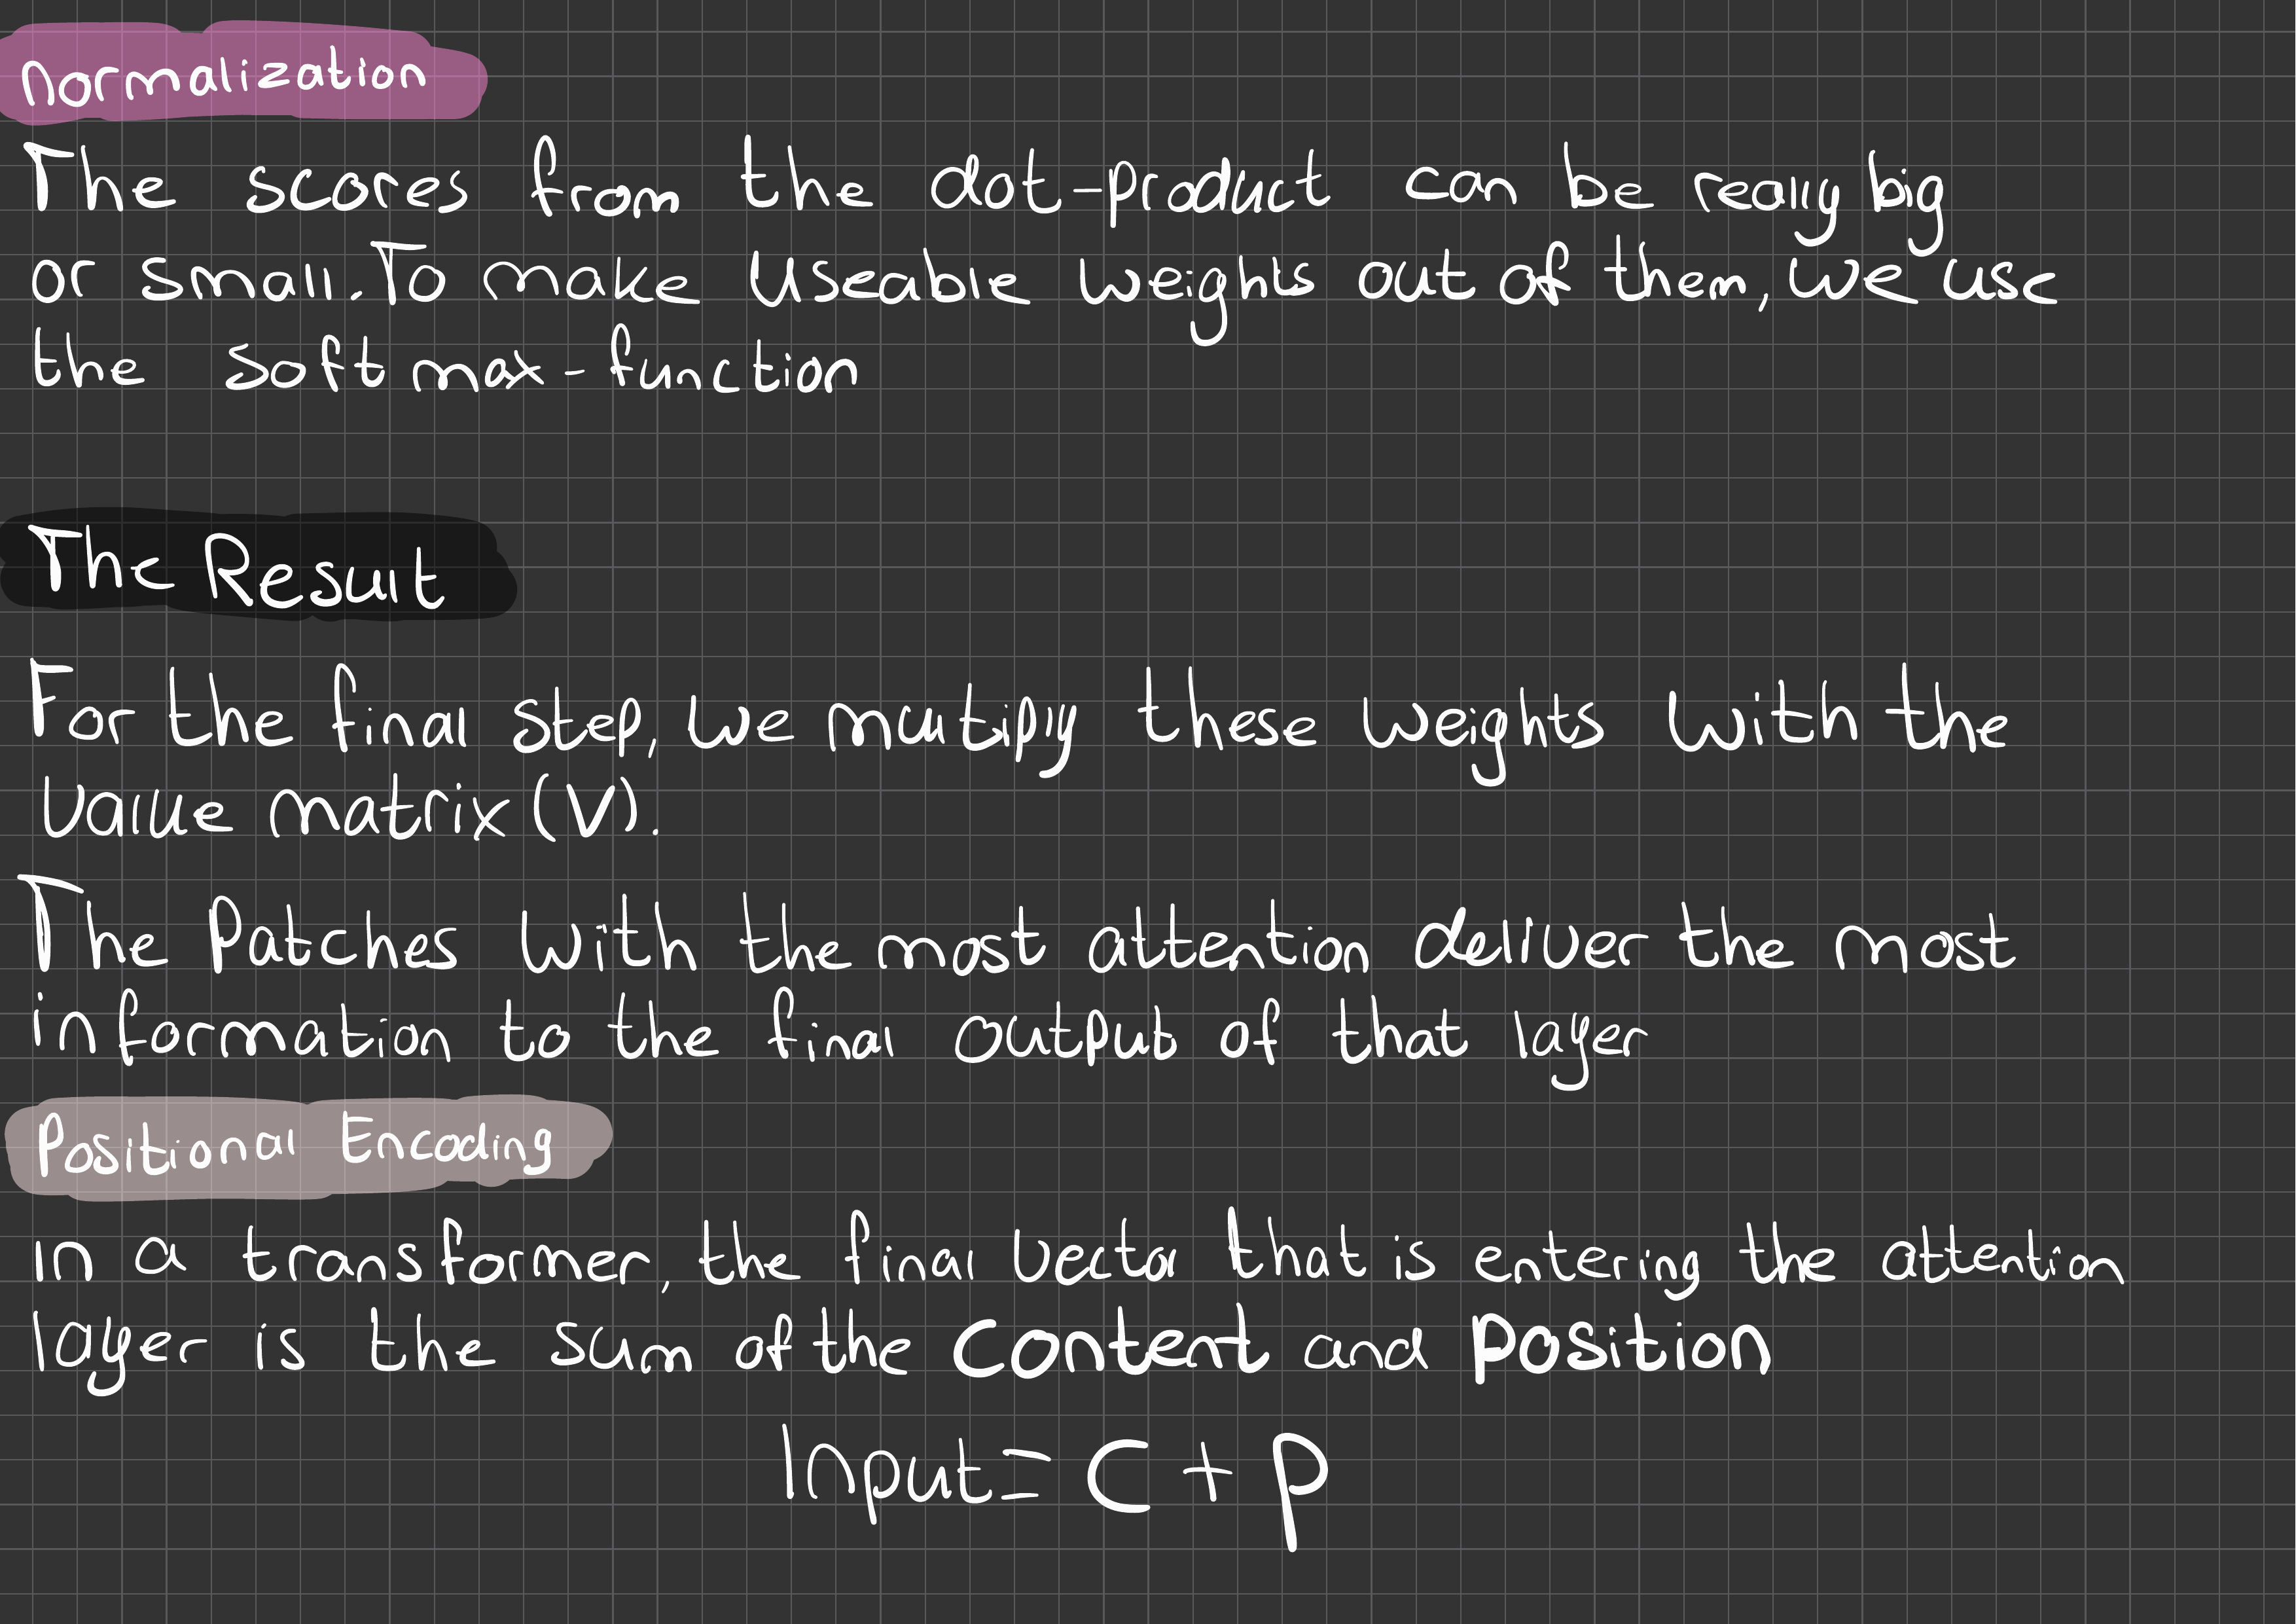 Normalization
The scores from the dot-product can be really big
or small. To make useable weights out of them, we use
the softmax-function
The Result
For the final step, we mutiply these weights with the
value matrix (V).
The Patches with the most attention deliver the most
information to the final output of that layer
Positional Encoding
in a transformer, the final vector that is entering the attention
layer is the sum of the Content and Position
Input = C + P